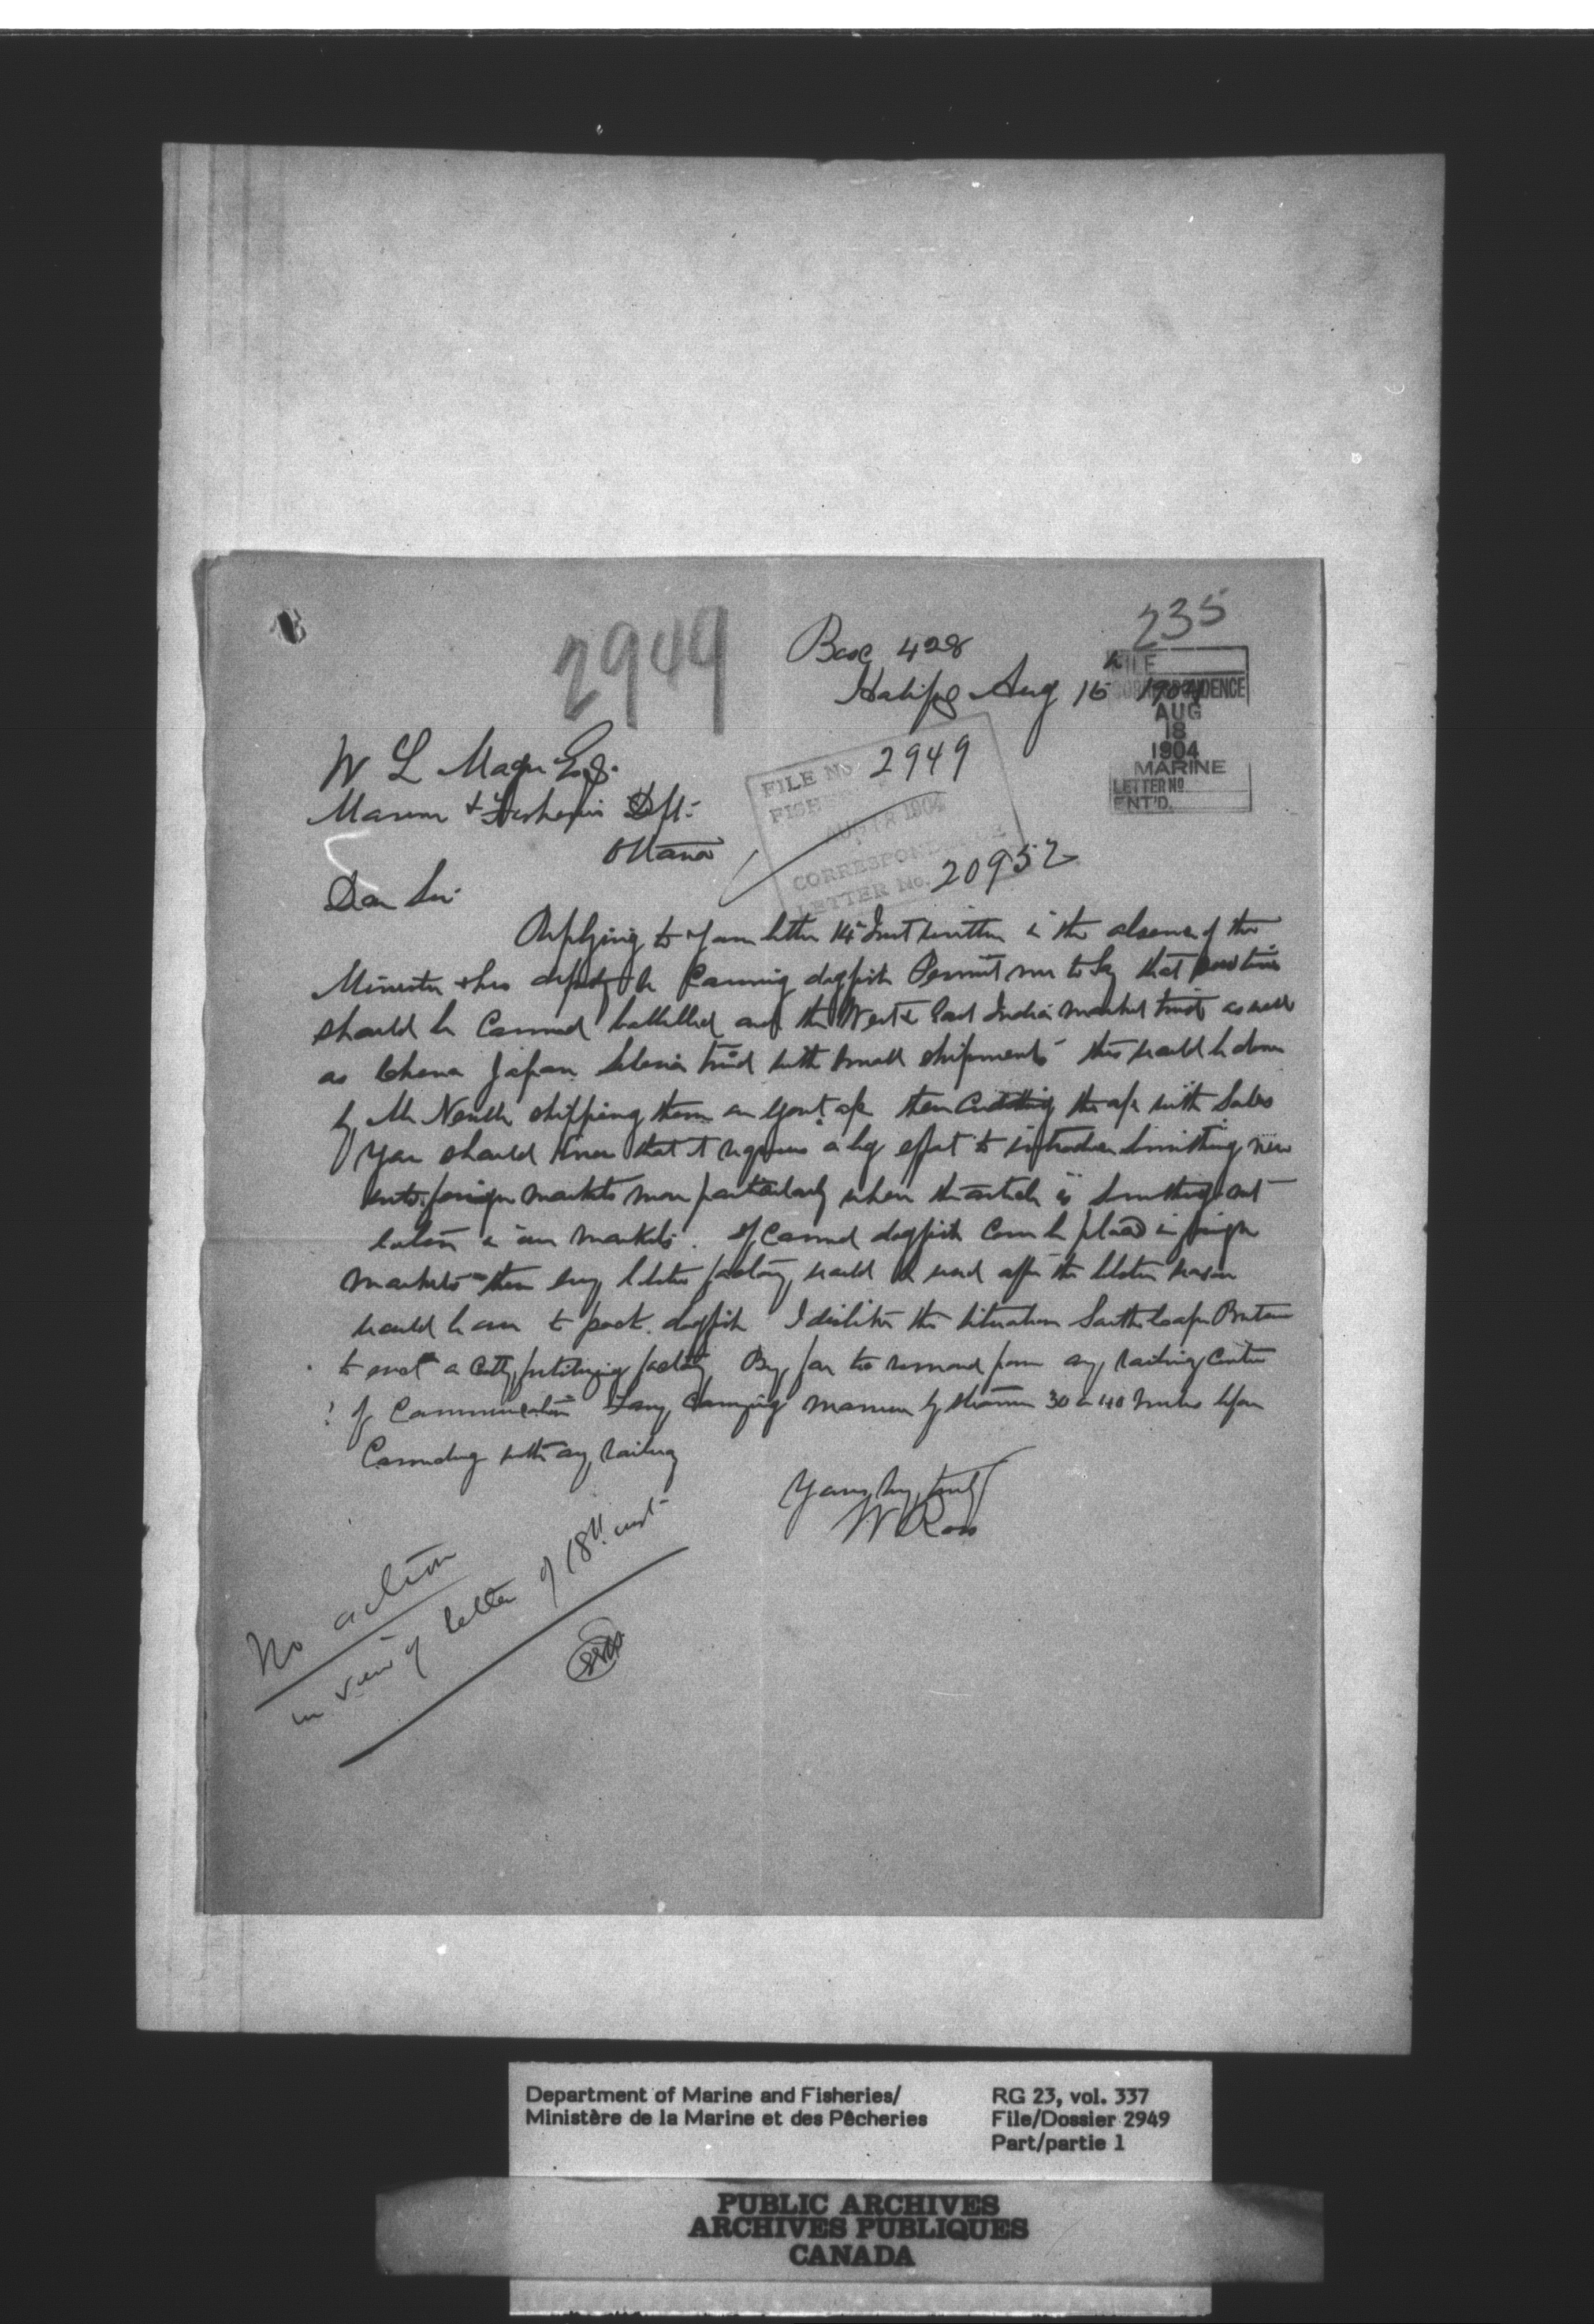 235
2949
Box 428
Halifax Aug 15 1904
FILE
CORRESPONDENCE
AUG
18
1904
MARINE
LETTER No
ENT'D.
W L Magee Esq.
Marine & Fisheries Dept.
Ottawa
FILE No. 2949
FISHERIES
AUG 18 1904
CORRESPONDENCE
LETTER No. 20952
Dear Sir
Replying to your letter 14th Inst written in the absence of the
Minister & his deputy re Canning dogfish Permit me to say that
should be Canned labelled and the West & East India market tried as well
as China Japan tried with small shipments this could be done
by Mr shipping them on Govt. a/c then the a/c with Sales
You should know that it requires a big effort to introduce something new
into foreign markets more particularly when the article is something not
eaten in our markets. If Canned dogfish Can be placed in foreign
markets then every lobster factory could be used after the lobster season
would be over to pack dogfish I dislike the situation South Cape Breton
to erect a Costly fertilizing factory By far too removed from any railway Centre
of Communication manure by steamer 30 or 40 miles before
Connecting with any railway
Yours very truly
W Ross
No action
in view of letter of 18th inst
Department of Marine and Fisheries/
Ministère de la Marine et des Pêcheries
RG 23, vol. 337
File/Dossier 2949
Part/partie 1
PUBLIC ARCHIVES
ARCHIVES PUBLIQUES
CANADA